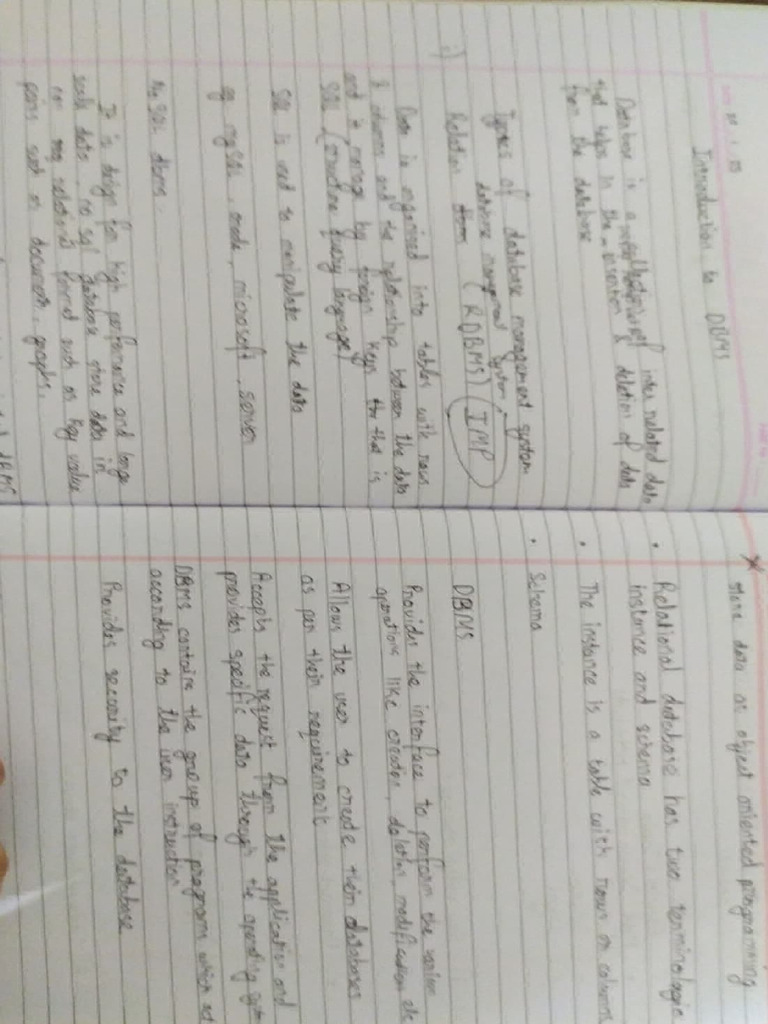 Introduction to DBMS
Database is a collection of inter related data
that helps in the insertion & deletion of data
from the database
Types of database management system
database management system
i) Relation (RDBMS) IMP
Data is organised into tables with rows
& columns and the relationship between the data
and is manage by foreign keys that is
SQL (structure query language)
SQL is used to manipulate the data
eg mySQL, oracle, microsoft, server
No SQL dbms
It is design for high performance and large
scale data. no sql database store data in
non relational format such as key value
pairs such as documents, graphs.
DBMS
store data as object oriented programming
• Relational database has two terminologie
instance and schema
• The instance is a table with rows or columns
• Schema
DBMS
Provides the interface to perform the various
operations like creation, deletion, modification etc
Allows the user to create their databases
as per their requirement
Accepts the request from the application and
provides specific data through the operating system
DBMS contains the group of programs which act
according to the user instruction
Provides security to the database